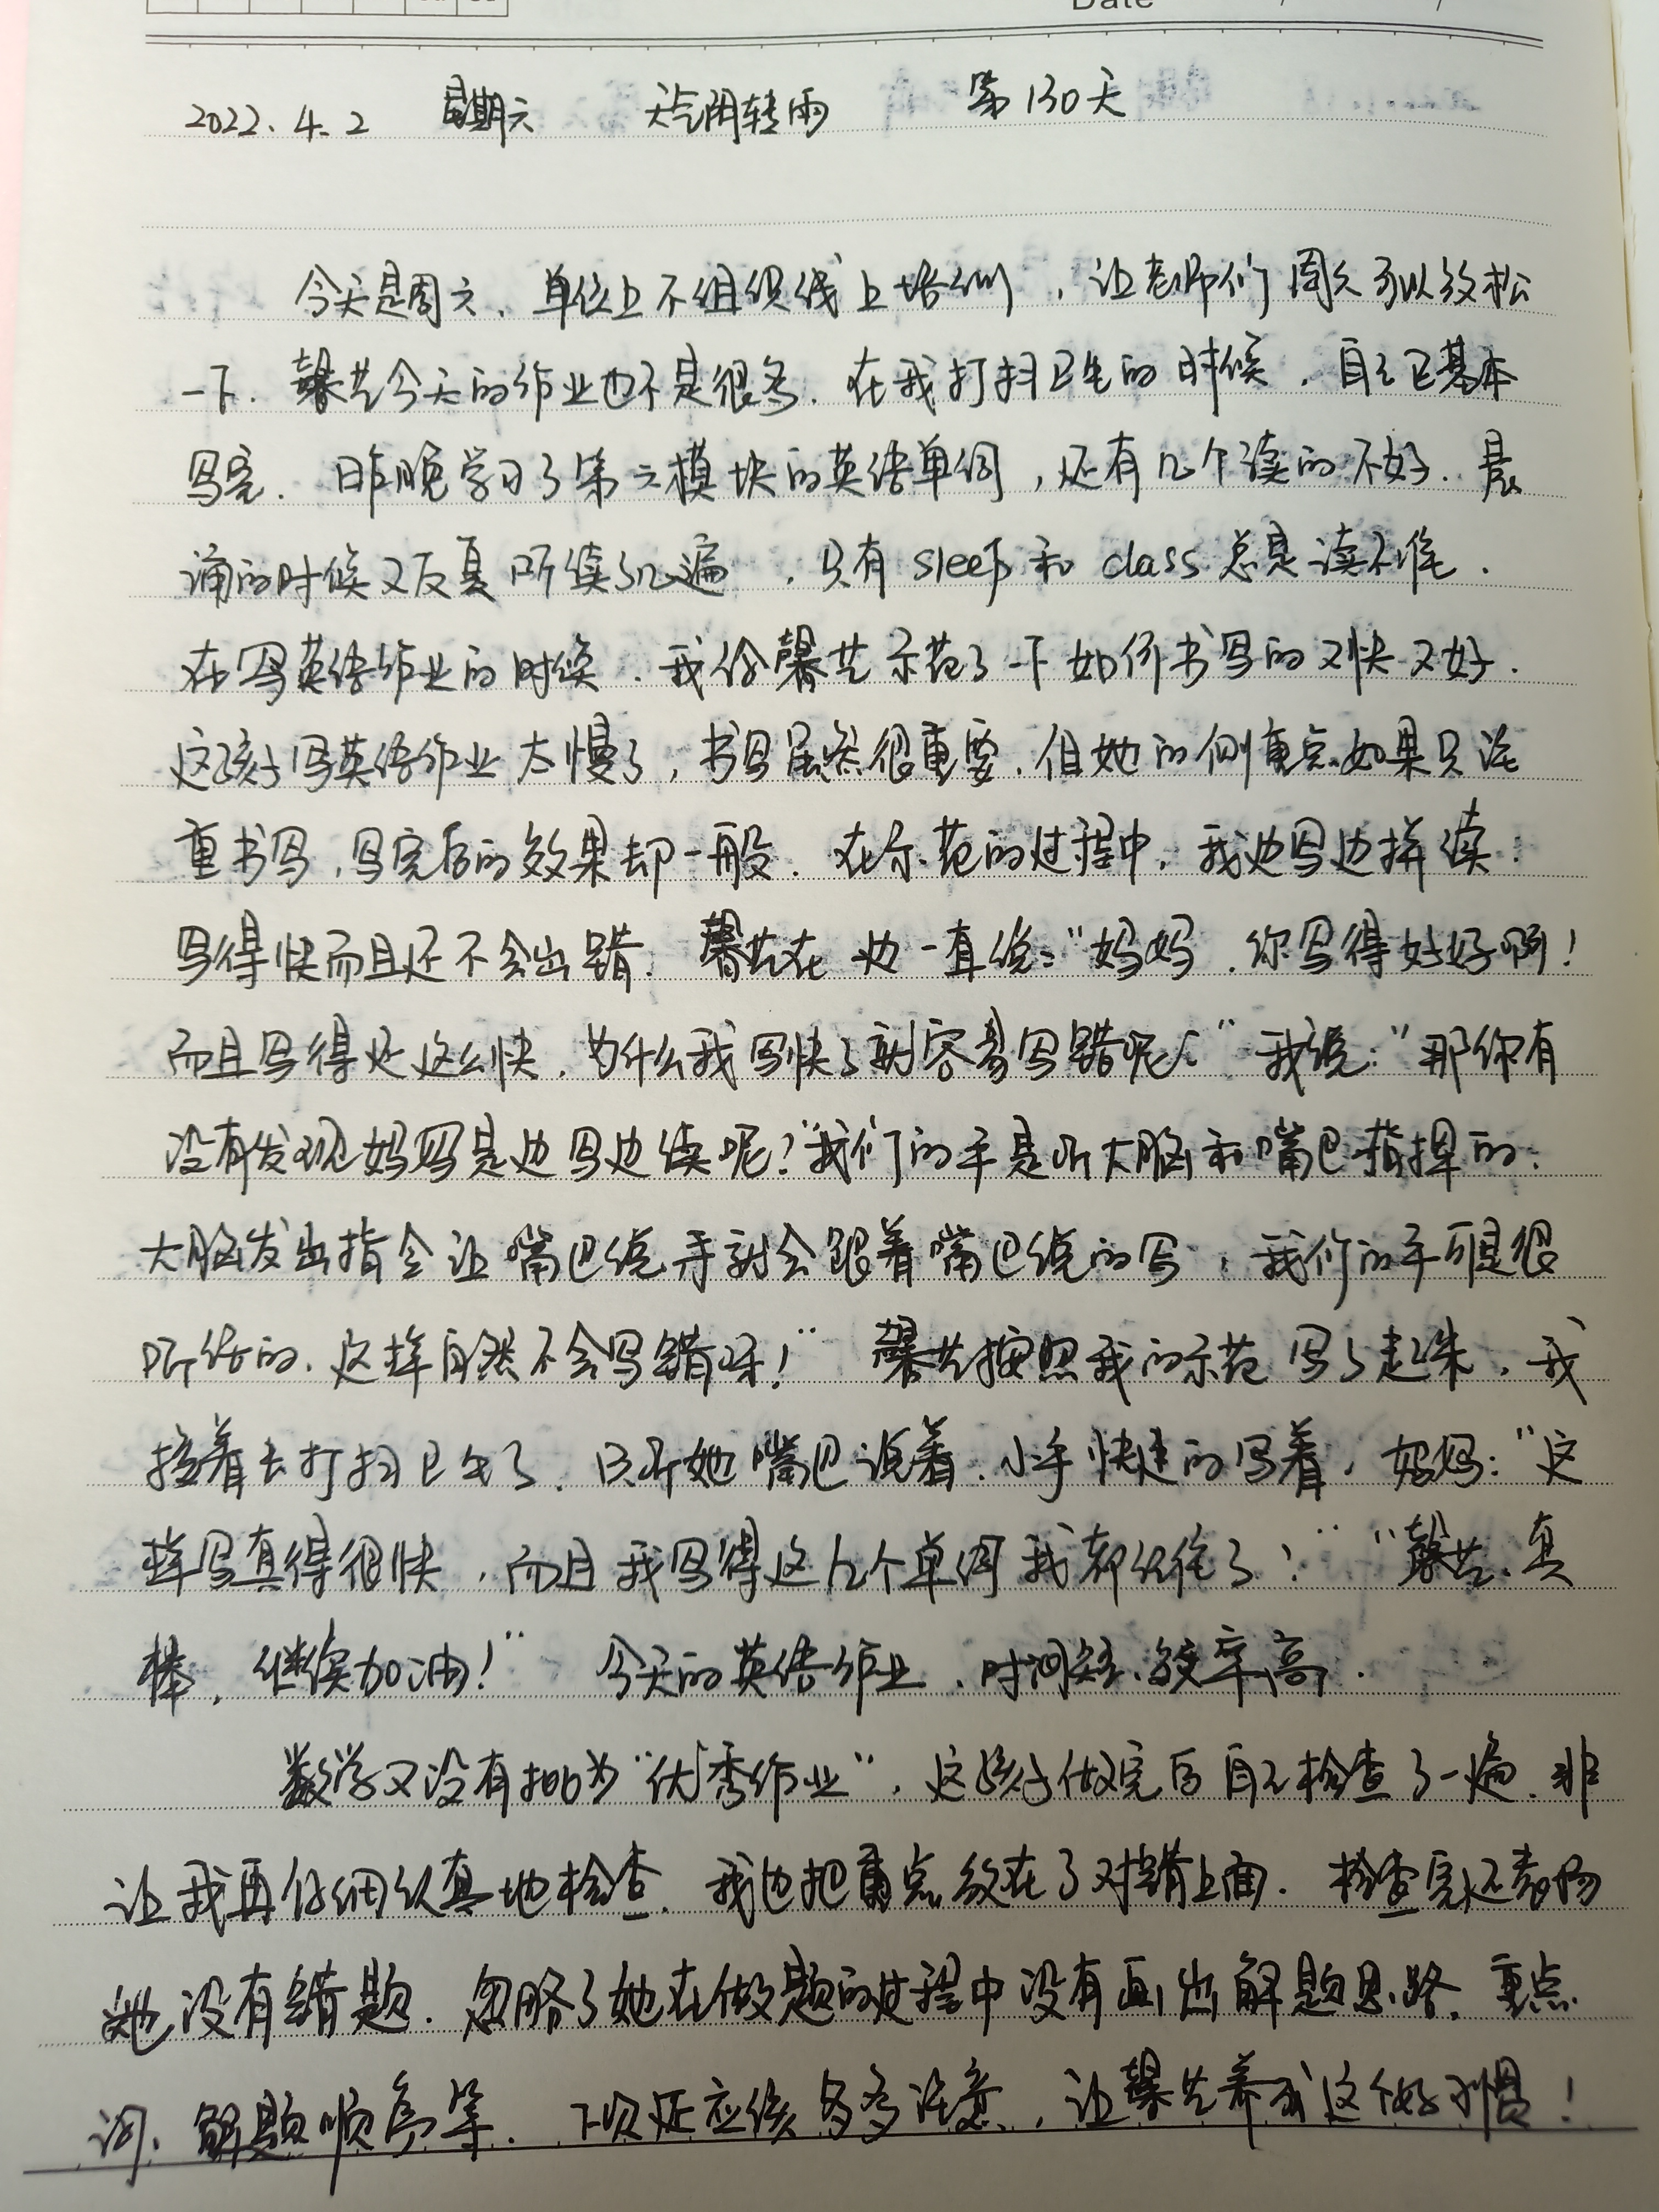 Date / /
2022.4.2 星期六 天气阴转雨 第130天
今天是周六、单位上不组织线上培训，让老师们周六可以放松
一下.馨艺今天的作业也不是很多.在我打扫卫生的时候，自己已基本
写完.昨晚学习了第六模块的英语单词，还有几个读的不好.晨
诵的时候又反复听读了几遍，只有sleep和class总是读不准.
在写英语作业的时候.我给馨艺示范了一下如何书写的又快又好.
这孩子写英语作业太慢了，书写虽然很重要.但她的侧重点如果只注
重书写，写完后的效果却一般.在示范的过程中，我边写边拼读.
写得快而且还不会出错.馨艺在边一直说："妈妈.你写得好好啊！
而且写得还这么快.为什么我写快了就容易写错呢？"我说："那你有
没有发现妈妈是边写边读呢？"我们的手是听大脑和嘴巴指挥的.
大脑发出指令让嘴巴说手就会跟着嘴巴说的写，我们的手可是很
听话的.这样自然不会写错呀！"馨艺按照我的示范写了起来，我
接着去打扫卫生了.只听她嘴巴说着.小手快速的写着，妈妈："这
样写真得很快，而且我写得这几个单词我都记住了！""馨艺、真
棒，继续加油！"今天的英语作业，时间短、效率高.
数学又没有批为"优秀作业"，这孩子做完后自己检查了一遍.非
让我再仔细认真地检查.我也把重点放在了对错上面.检查完还表扬
她没有错题.忽略了她在做题的过程中没有画出解题思路.重点
词、解题顺序等.下次还应该多多注意，让馨艺养成这个好习惯！